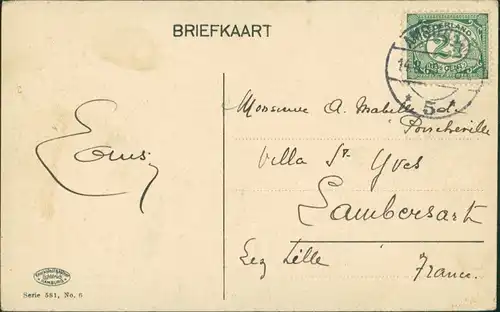 BRIEFKAART
NEDERLAND
2½
CENT
5
Monsieur A. Mabille de
Poncheville
Villa St Yves
Lambersart
Lez Lille
France.
HAMBURG
Serie 581, No. 6